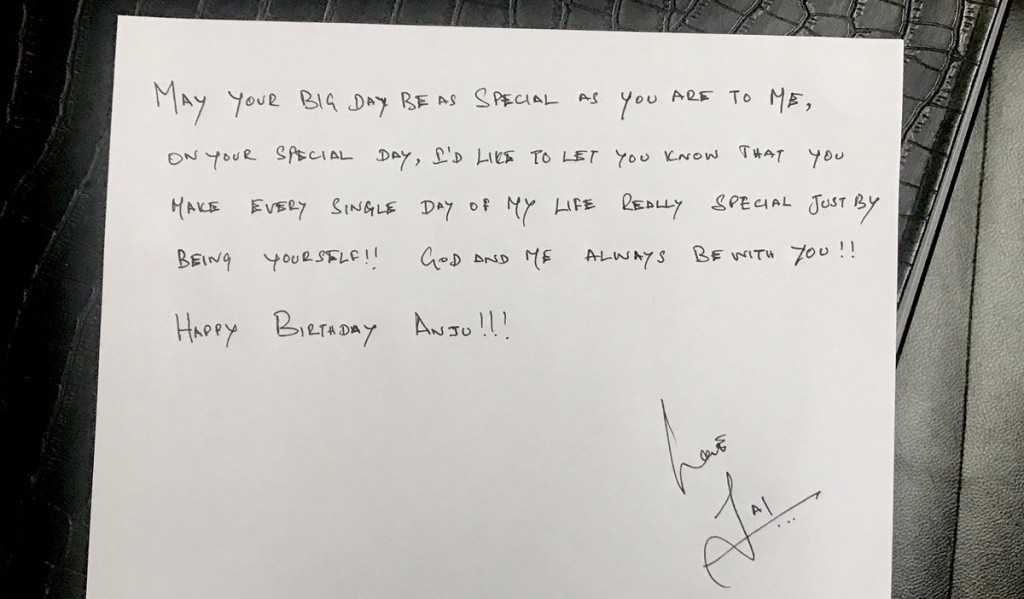 MAY YOUR BIG DAY BE AS SPECIAL AS YOU ARE TO ME,
ON YOUR SPECIAL DAY, I'D LIKE TO LET YOU KNOW THAT YOU
MAKE EVERY SINGLE DAY OF MY LIFE REALLY SPECIAL JUST BY
BEING YOURSELF!! GOD AND ME ALWAYS BE WITH YOU!!
HAPPY BIRTHDAY ANJU!!!
Love
JAI...